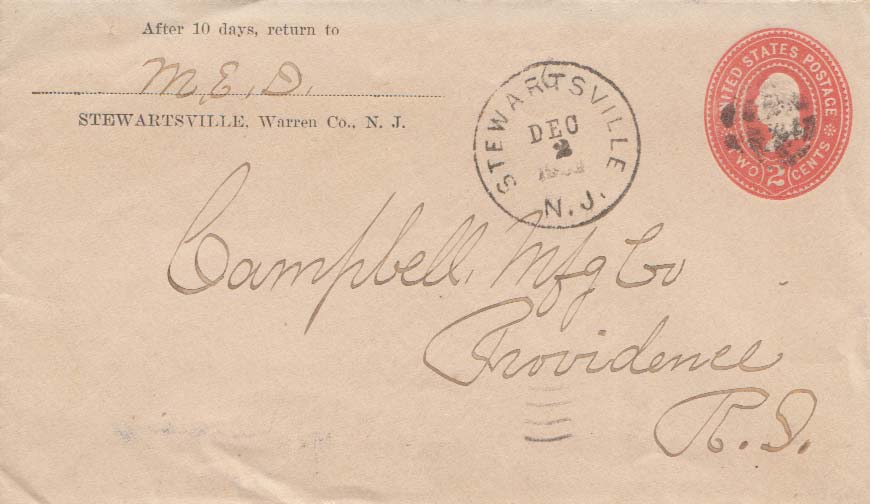 After 10 days, return to
M. E. D.
STEWARTSVILLE, Warren Co., N. J.
STEWARTSVILLE
DEC
2
N. J.
UNITED STATES POSTAGE
TWO 2 CENTS
Campbell, Mfg Co
Providence
R. I.